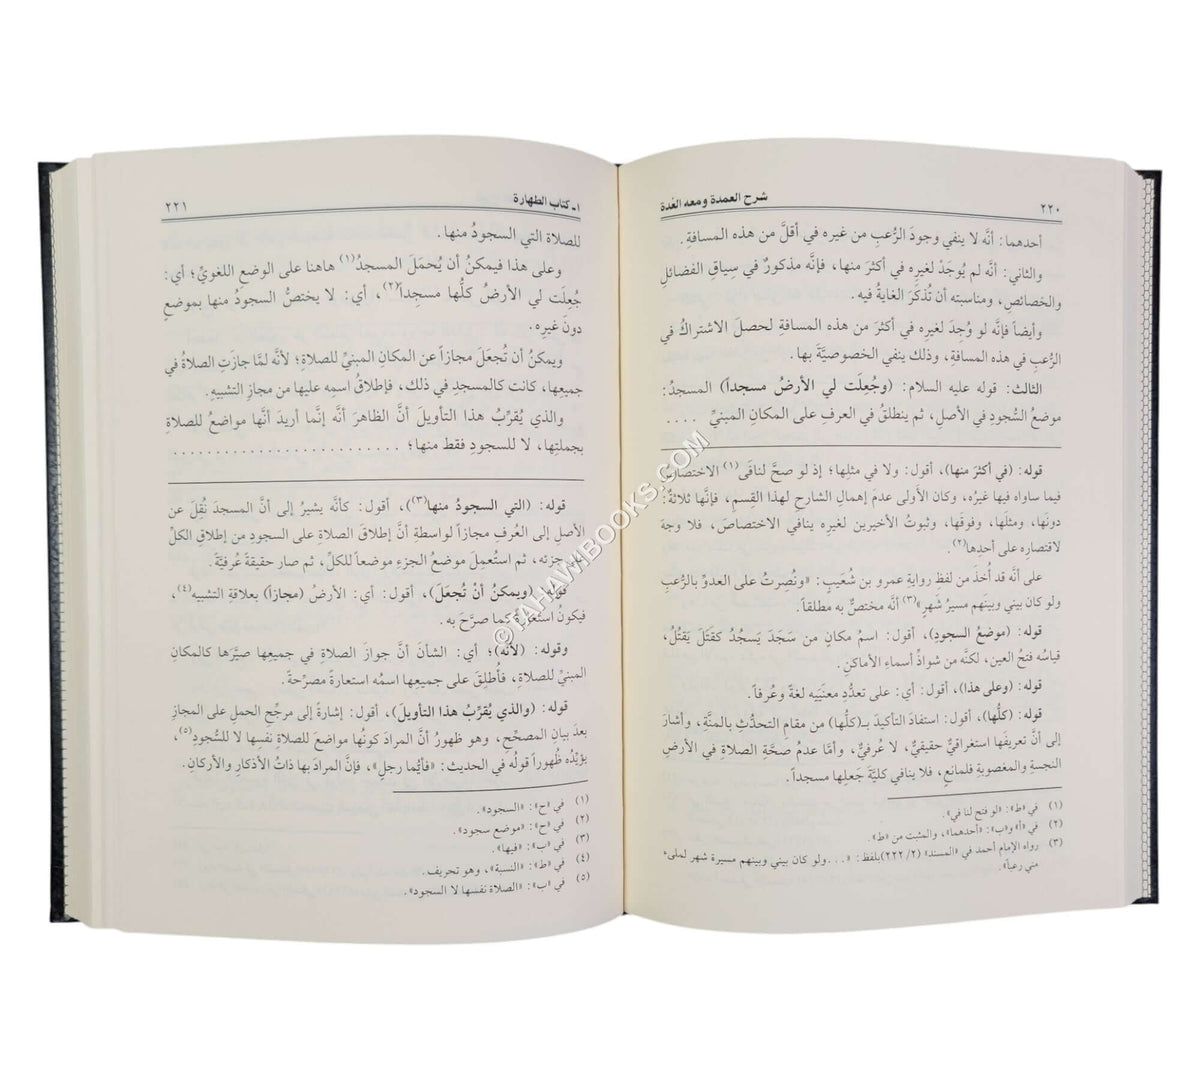 ٢٢٠
شرح العمدة ومعه العُدة
أحدهما: أنَّه لا ينفي وجودَ الرُّعبِ من غيره في أقلَّ من هذه المسافةِ.
والثاني: أنَّه لم يُوجَدْ لغيره في أكثرَ منها، فإنَّه مذكورٌ في سِياقِ الفضائلِ
والخصائصِ، ومناسبته أن تُذكَرَ الغايةُ فيه.
وأيضاً فإنَّه لو وُجِدَ لغيره في أكثرَ من هذه المسافةِ لحصلَ الاشتراكُ في
الرُّعبِ في هذه المسافةِ، وذلك ينفي الخصوصيَّةَ بها.
الثالث: قوله عليه السلام: (وجُعِلَت لي الأرضُ مسجداً) المسجدُ:
موضعُ السُّجودِ في الأصلِ، ثم ينطلقُ في العرفِ على المكانِ المبنيِّ .....
قوله: (في أكثرَ منها)، أقول: ولا في مثلِها؛ إذ لو صحَّ لنافَى(١) الاختصاصَ
فيما ساواه فيها غيرُه، وكان الأَولى عدمَ إهمالِ الشارحِ لهذا القِسمِ، فإنَّها ثلاثةٌ:
دونَها، ومثلَها، وفوقَها، وثبوتُ الأخيرين لغيرِه ينافي الاختصاصَ، فلا وجهَ
لاقتصاره على أحدِها(٢).
على أنَّه قد أُخذَ من لفظِ روايةِ عمرو بن شُعَيبٍ: «ونُصِرتُ على العدوِّ بالرُّعبِ
ولو كان بيني وبينَهم مسيرُ شَهرٍ»(٣) أنَّه مختصٌّ به مطلقاً.
قوله: (موضعُ السجودِ)، أقول: اسمُ مكانٍ من سَجَدَ يَسجُدُ كقَتَلَ يَقتُلُ،
قياسُه فتحُ العين، لكنَّه من شواذِّ أسماءِ الأماكنِ.
قوله: (وعلى هذا)، أقول: أي: على تعدُّدِ معنَييه لغةً وعُرفاً.
قوله: (كلُّها)، أقول: استفادَ التأكيدَ بـ(كلُّها) من مقامِ التحدُّثِ بالمنَّةِ، وأشارَ
إلى أنَّ تعريفَها استغراقيٌّ حقيقيٌّ، لا عُرفيٌّ، وأمَّا عدمُ صحَّةِ الصلاةِ في الأرضِ
النجسةِ والمغصوبةِ فلمانعٍ، فلا ينافي كليَّةَ جَعلِها مسجداً.
(١) في «ط»: «لو فتح لنا في».
(٢) في «أ» و«ب»: «أحدهما»، والمثبت من «ط».
(٣) رواه الإمام أحمد في «المسند» (٢/ ٢٢٢) بلفظ: «...ولو كان بيني وبينهم مسيرة شهر لملىء
مني رعباً».
١ـ كتاب الطهارة
٢٢١
للصلاة التي السجودُ منها.
وعلى هذا فيمكنُ أن يُحمَلَ المسجدُ(١) هاهنا على الوضعِ اللغويِّ؛ أي:
جُعِلَت لي الأرضُ كلُّها مسجداً(٢)، أي: لا يختصُّ السجودُ منها بموضعٍ
دونَ غيرِه.
ويمكنُ أن تُجعَلَ مجازاً عن المكانِ المبنيِّ للصلاةِ؛ لأنَّه لمَّا جازَتِ الصلاةُ في
جميعِها، كانت كالمسجدِ في ذلك، فإطلاقُ اسمِه عليها من مجازِ التشبيهِ.
والذي يُقرِّبُ هذا التأويلَ أنَّ الظاهرَ أنَّه إنما أريدَ أنَّها مواضعُ للصلاةِ
بجملتِها، لا للسجودِ فقط منها؛ ..........................
قوله: (التي السجودُ منها(٣))، أقول: كأنَّه يشيرُ إلى أنَّ المسجدَ نُقِلَ عن
الأصلِ إلى العُرفِ مجازاً لواسطةِ أنَّ إطلاقَ الصلاةِ على السجودِ من إطلاقِ الكلِّ
على جزئه، ثم استُعمِلَ موضعُ الجزءِ موضعاً للكلِّ، ثم صار حقيقةً عُرفيَّةً.
قوله: (ويمكنُ أنْ تُجعَلَ)، أقول: أي: الأرضُ (مجازاً) بعلاقةِ التشبيه(٤)،
فيكونُ استعارةً كما صرَّحَ به.
وقوله: (لأنَّه)؛ أي: الشأنَ أنَّ جوازَ الصلاةِ في جميعِها صيَّرَها كالمكانِ
المبنيِّ للصلاةِ، فأُطلِقَ على جميعِها اسمُه استعارةً مصرِّحةً.
قوله: (والذي يُقرِّبُ هذا التأويلَ)، أقول: إشارةً إلى مرجِّحِ الحملِ على المجازِ
بعدَ بيانِ المصحِّحِ، وهو ظهورُ أنَّ المرادَ كونُها مواضعَ للصلاةِ نفسِها لا للسُّجودِ(٥)،
يؤيِّدُه ظُهوراً قولُه في الحديث: «فأيُّما رجلٍ»، فإنَّ المرادَ بها ذاتُ الأذكارِ والأركانِ.
(١) في «ح»: «السجود».
(٢) في «ح»: «موضع سجود».
(٣) في «ب»: «فيها».
(٤) في «ط»: «النسبة»، وهو تحريف.
(٥) في «ب»: «الصلاة نفسها لا السجود».
©TAHAWIBOOKS.COM